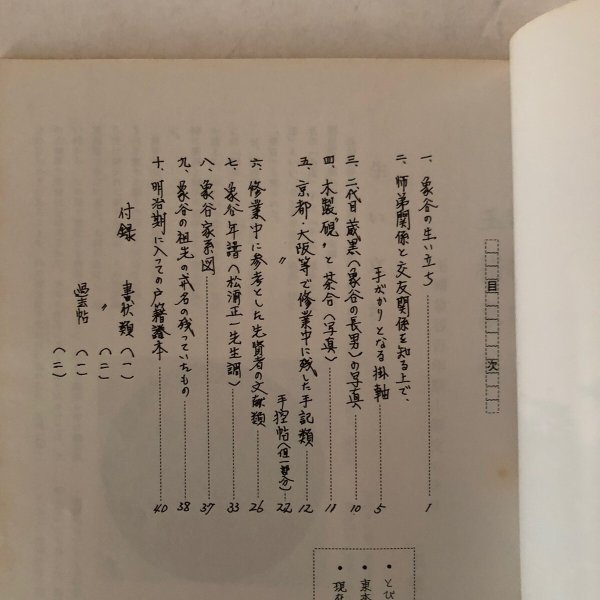 目次
一、象谷の生い立ち 1
二、師弟関係と交友関係を知る上で、
手がかりとなる掛軸 5
三、二代目蔵黒(象谷の長男)の写真 10
四、木製〝硯〟と茶合(写真) 11
五、京都・大阪等で修業中に残した手記類 12
〃 手控帖(但一部分) 22
六、修業中に参考とした先賢者の文献類 26
七、象谷年譜(松浦正一先生調) 33
八、象谷家系図 37
九、象谷の祖先の戒名の残っていたもの 38
十、明治期に入っての戸籍證本 40
付録 書状類(一)
〃 (二)
過去帖(一)
(二)
・とび
・東本
・現在